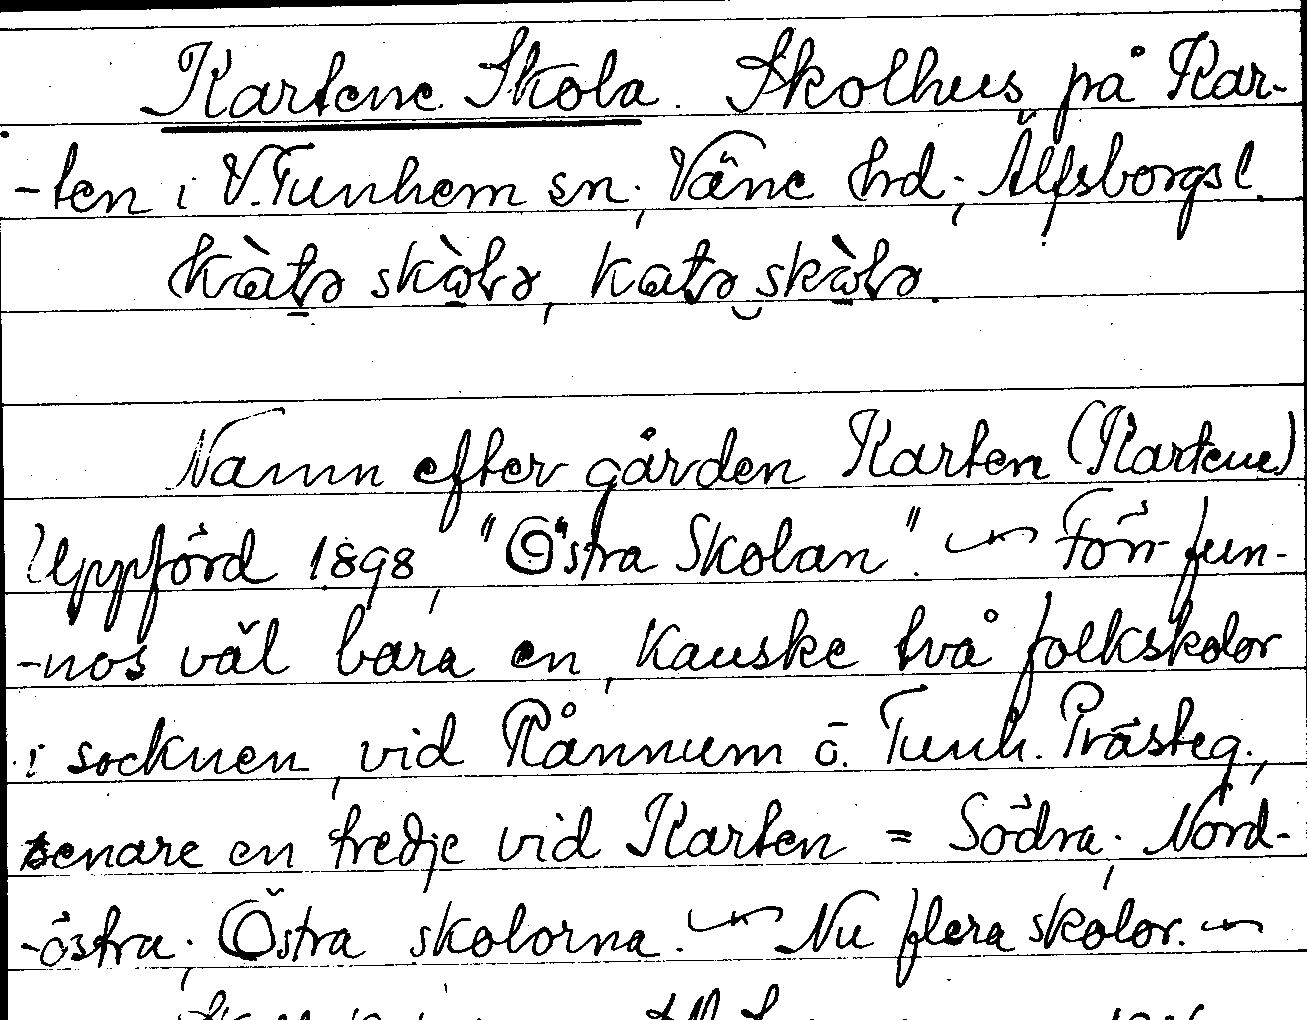 Kartene Skola. Skolhus på Kar-
-ten i V. Tunhem sn; Väne hrd; Älfsborgs l.
Namn efter gården Karten (Kartene)
Uppförd 1898, "Östra Skolan". ~ Förr fun-
-nos väl bara en, kanske två folkskolor
i socknen, vid Rånnum o. Tunh. Prästeg.,
senare en tredje vid Karten = Södra; Nord-
-östra; Östra skolorna. ~ Nu flera skolor. ~